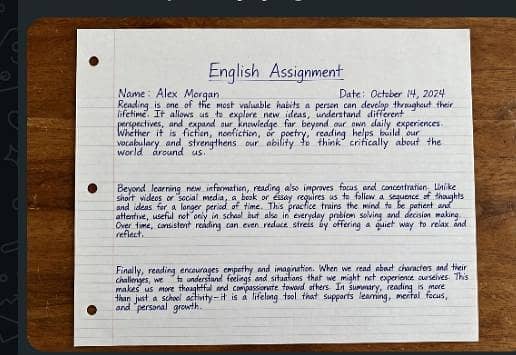 English Assignment
Name: Alex Morgan Date: October 14, 2024
Reading is one of the most valuable habits a person can develop throughout their
lifetime. It allows us to explore new ideas, understand different
perspectives, and expand our knowledge far beyond our own daily experiences.
Whether it is fiction, nonfiction, or poetry, reading helps build our
vocabulary and strengthens our ability to think critically about the
world around us.
Beyond learning new information, reading also improves focus and concentration. Unlike
short videos or social media, a book or essay requires us to follow a sequence of thoughts
and ideas for a longer period of time. This practice trains the mind to be patient and
attentive, useful not only in school but also in everyday problem solving and decision making.
Over time, consistent reading can even reduce stress by offering a quiet way to relax and
reflect.
Finally, reading encourages empathy and imagination. When we read about characters and their
challenges, we to understand feelings and situations that we might not experience ourselves. This
makes us more thoughtful and compassionate toward others. In summary, reading is more
than just a school activity—it is a lifelong tool that supports learning, mental focus,
and personal growth.